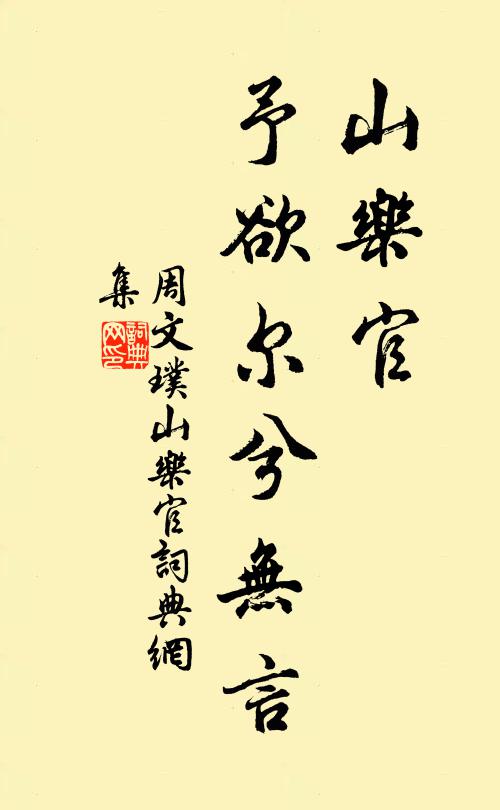 山樂官
予欲尔兮無言
周文璞山樂官詞典網
集
詞典網印